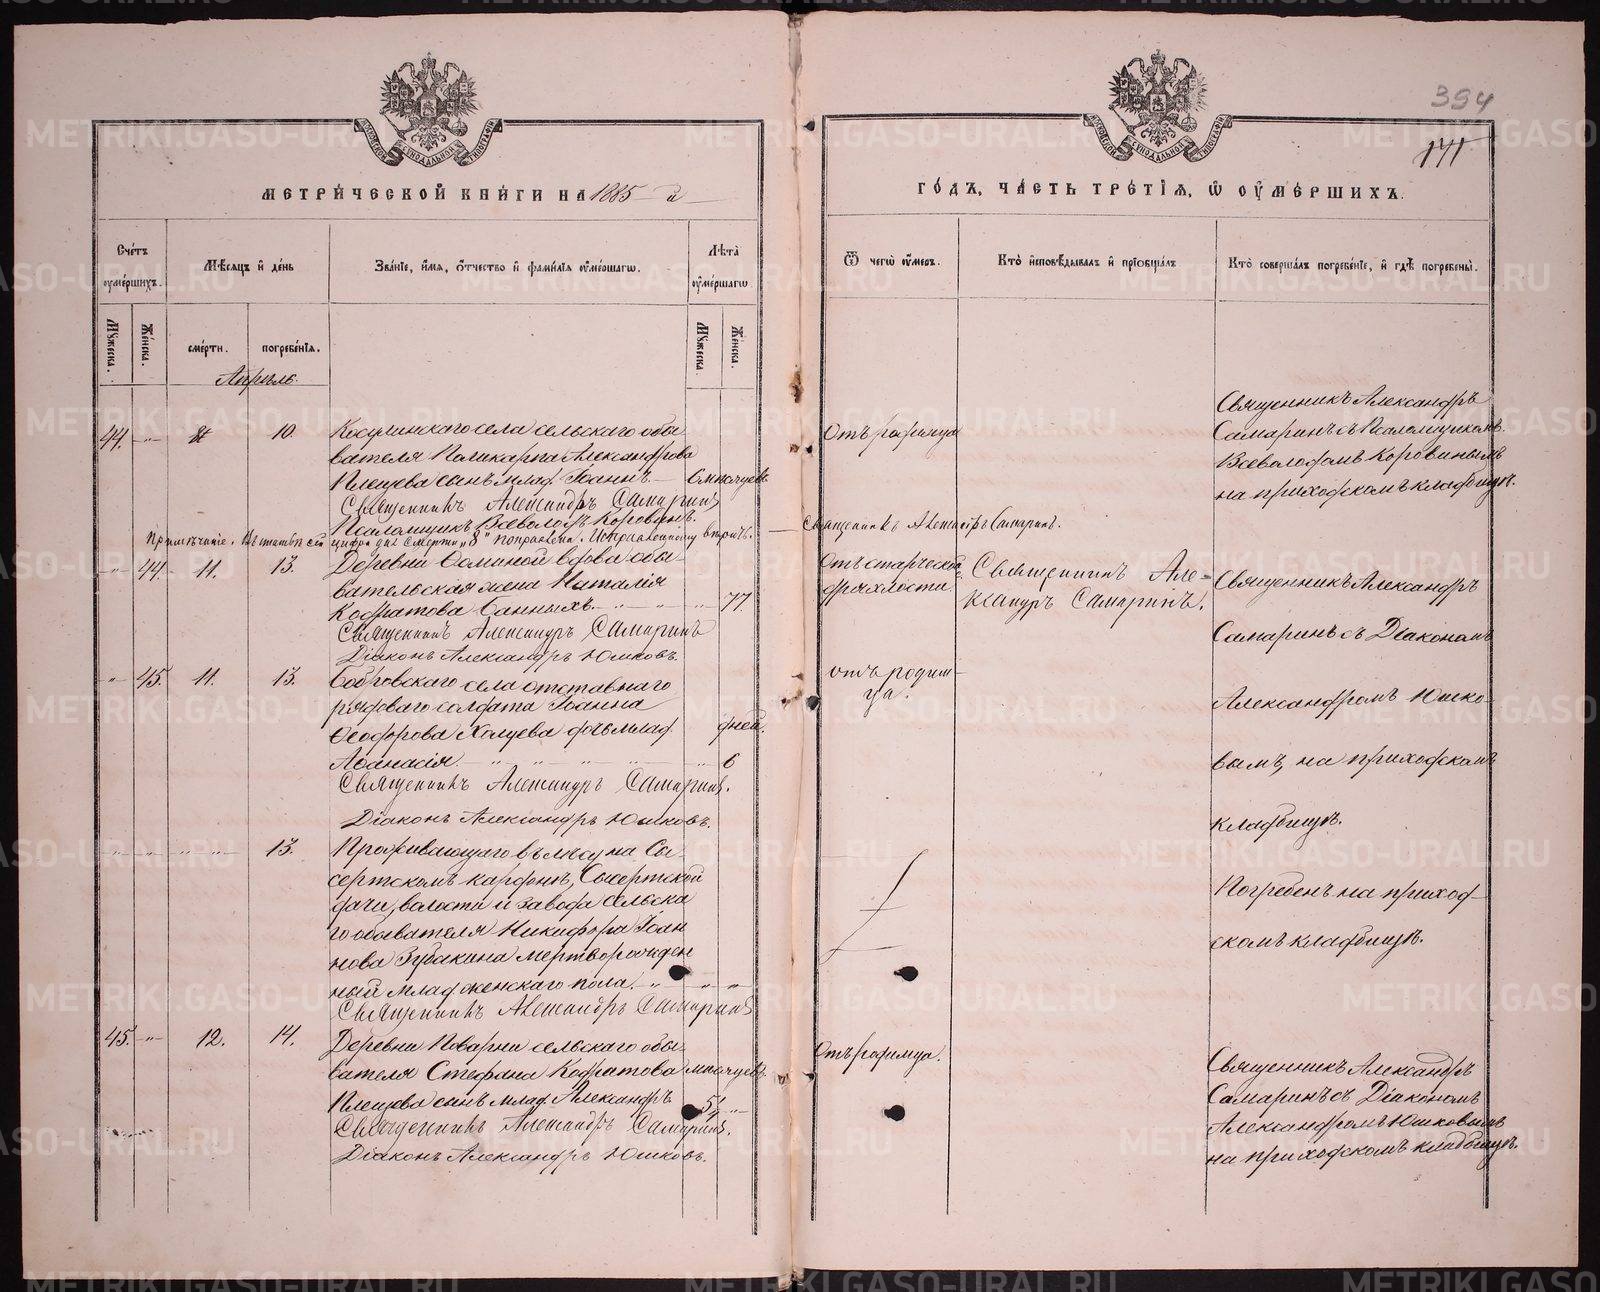 394
171
МОСКОВСКОЙ СѴНОДАЛЬНОЙ ТИПОГРАФІИ
МЕТРИЧЕСКОЙ КНИГИ НА 1885 й
Счетъ оумершихъ.
Мѣсяцъ и день
Званіе, имя, отчество и фамилія оумершагω.
Лѣта оумершагω
Мужеска.
Женска.
смерти.
погребенія.
Мужеска.
Женска.
Апрѣль.
44. -„- 8 10.
Косулинскаго села сельскаго обы-
вателя Поликарпа Александрова
Плещева сынъ млад. Іоаннъ — 6 мѣсяцевъ
Священникъ Александръ Самаринъ
Псаломщикъ Всеволодъ Коровинъ.
Примѣчаніе. Въ статьѣ сей цифра дня смерти „8" поправлена. Исправленному вѣрить.
-„- 44. 11. 13.
Деревни Осминой вдова обы-
вательская жена Наталія
Кодратова Банныхъ. 77
Священникъ Александръ Самаринъ
Діаконъ Александръ Юшковъ.
-„- 45. 11. 13.
Бобровскаго села отставнаго
рядоваго солдата Іоанна
Ѳеодорова Халуева дочь млад. дней.
Аѳанасія. 6
Священникъ Александръ Самаринъ.
Діаконъ Александръ Юшковъ.
13.
Проживающаго въ лѣсу на Сы-
сертскомъ кардонѣ, Сысертской
дачи, волости и завода сельска
го обывателя Никифора Іоан
нова Зубакина мертворожден
ный млад. женскаго пола.
Священникъ Александръ Самаринъ
45. -„- 12. 14.
Деревни Поварни сельскаго обы-
вателя Стефана Кодратова мѣсяцевъ
Плещева сынъ млад. Александръ 5
Священникъ Александръ Самаринъ.
Діаконъ Александръ Юшковъ.
МОСКОВСКОЙ СѴНОДАЛЬНОЙ ТИПОГРАФІИ
ГОДЪ, ЧАСТЬ ТРЕТІЯ, Ѡ ОУМЕРШИХЪ.
Ѿ чегω оумеръ.
Кто исповѣдывалъ и пріобщалъ
Кто совершалъ погребеніе, и гдѣ погребены.
Отъ родимца
Священникъ Александръ
Самаринъ съ Псаломщикомъ
Всеволодомъ Коровинымъ
на приходскомъ кладбищѣ.
Священникъ Александръ Самаринъ.
Отъ старческой
дряхлости.
Священникъ Але-
ксандръ Самаринъ.
Священникъ Александръ
Самаринъ съ Діакономъ
отъ родим-
ца.
Александромъ Юшко-
вымъ, на приходскомъ
кладбищѣ.
Погребенъ на приход-
скомъ кладбищѣ.
Отъ родимца.
Священникъ Александръ
Самаринъ съ Діакономъ
Александромъ Юшковымъ
на приходскомъ кладбищѣ.
METRIKI.GASO-URAL.RU